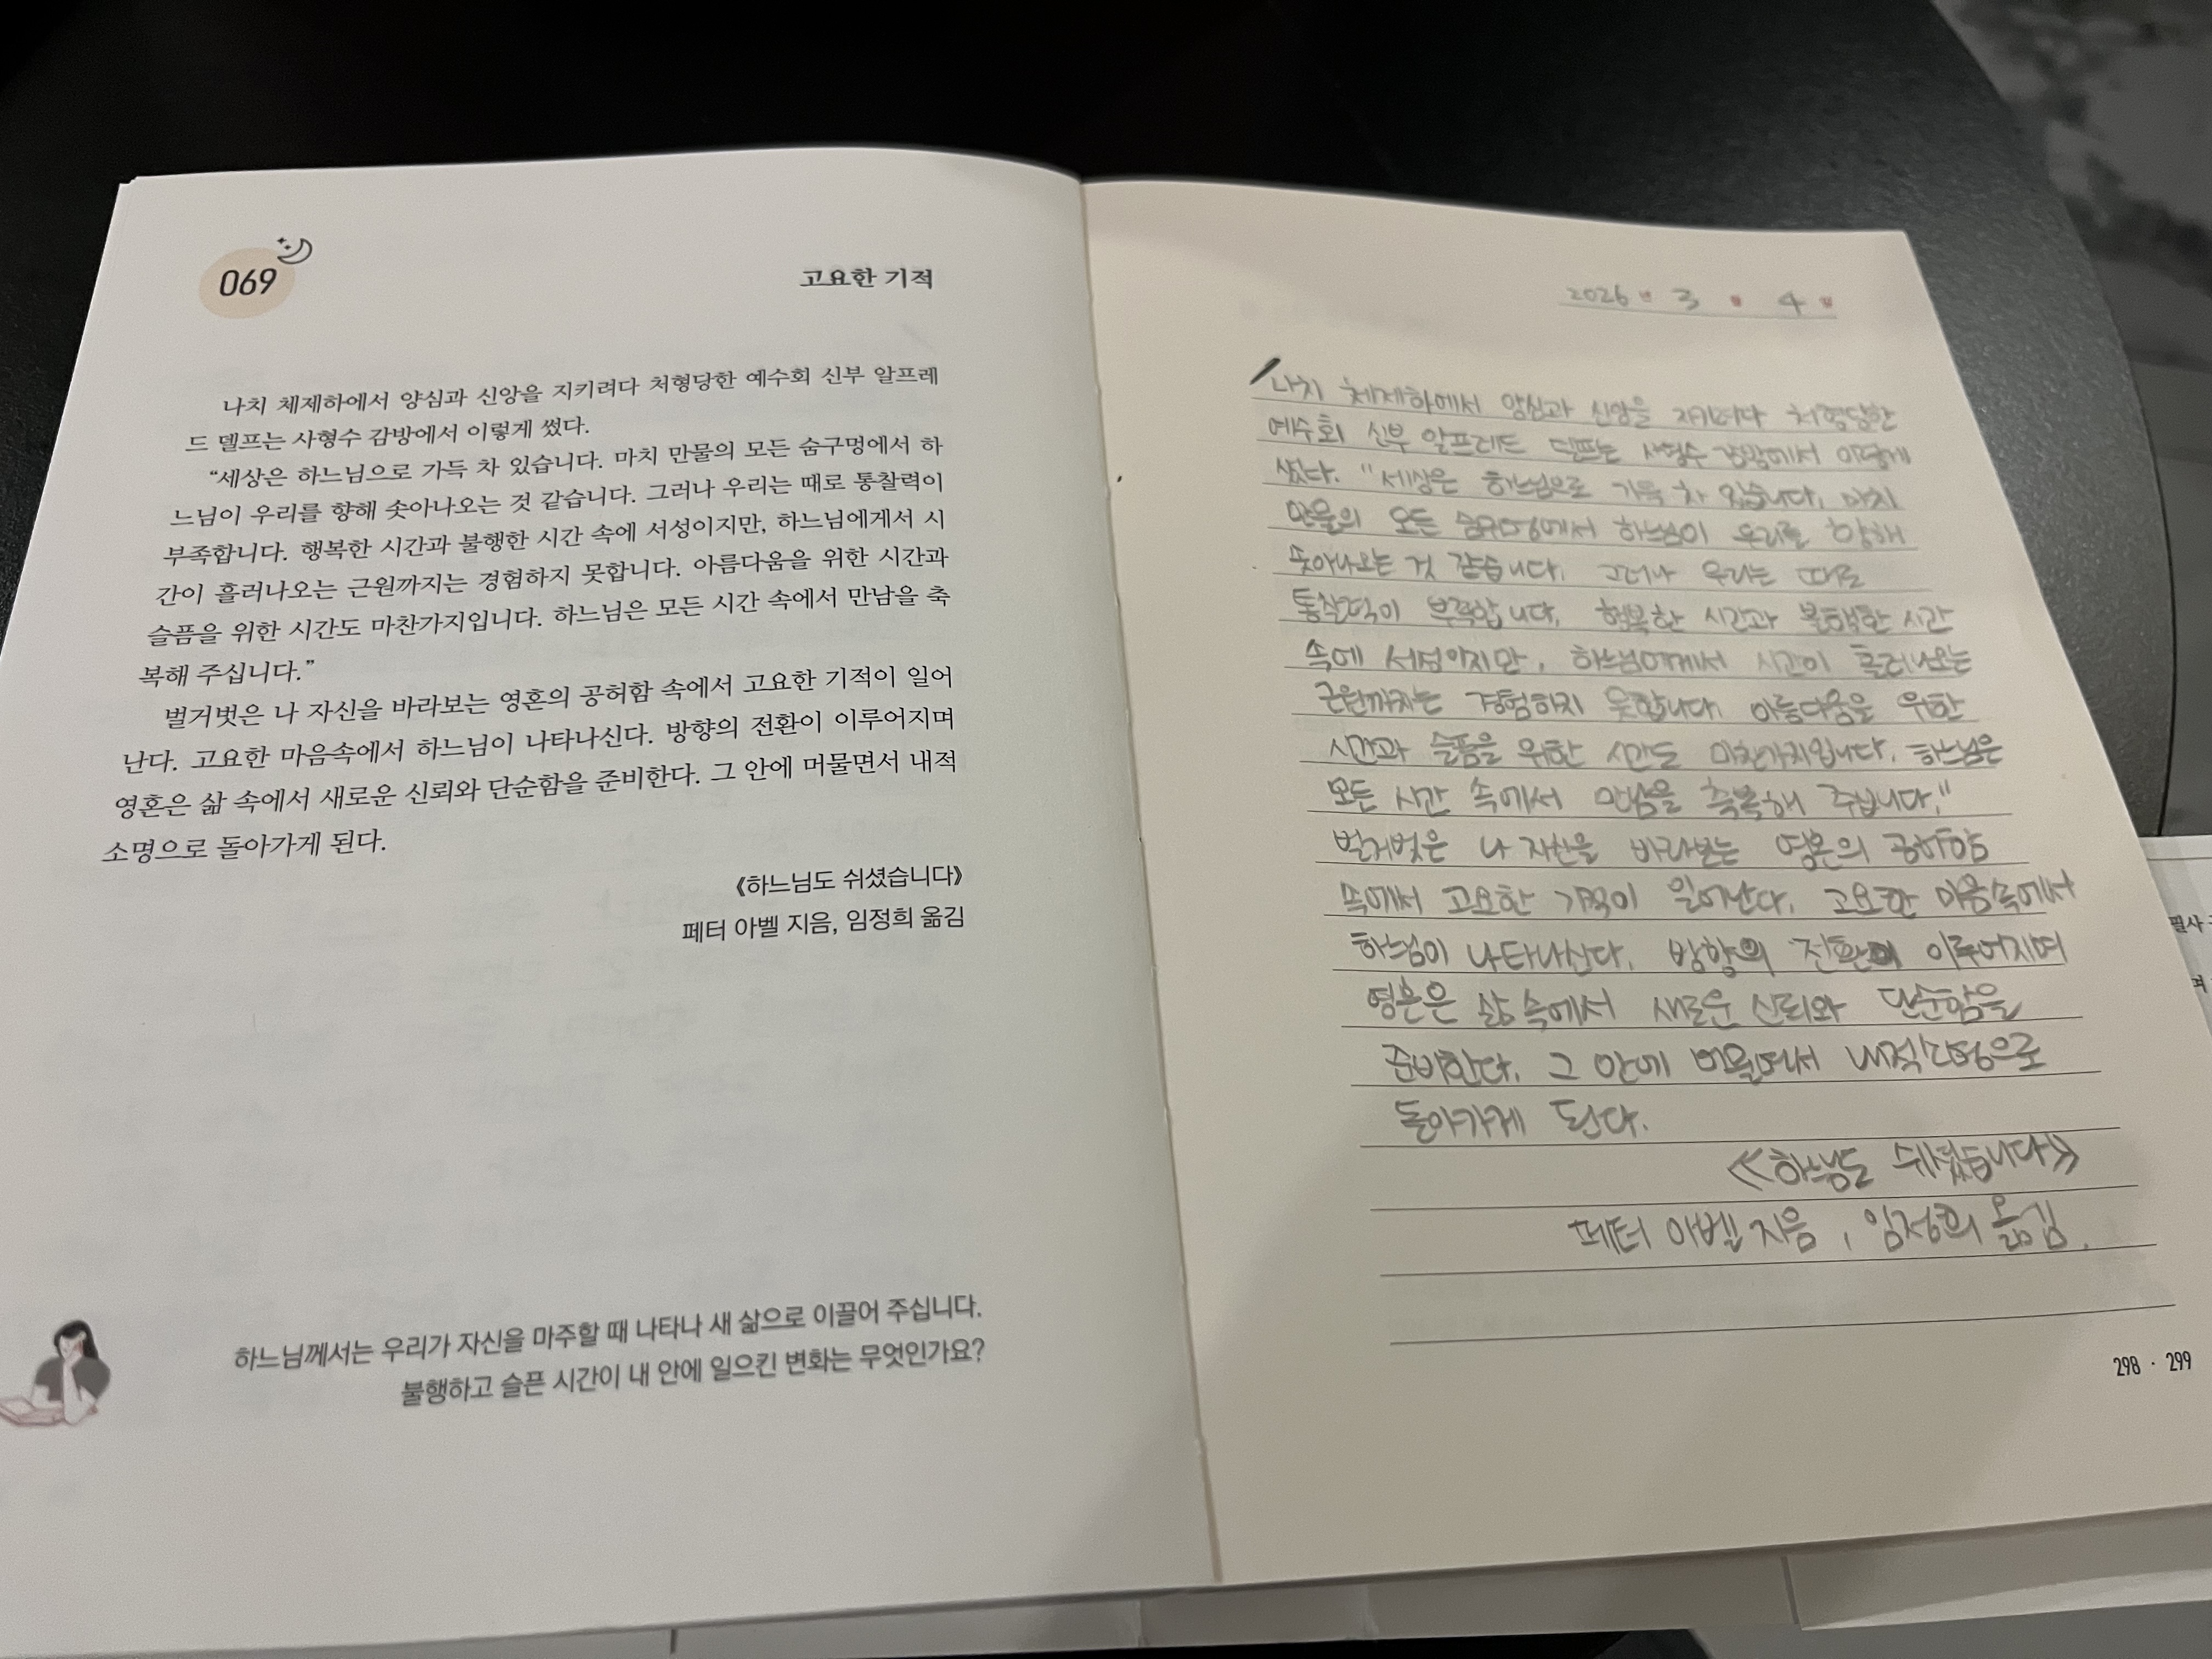 069
고요한 기적
나치 체제하에서 양심과 신앙을 지키려다 처형당한 예수회 신부 알프레
드 델프는 사형수 감방에서 이렇게 썼다.
“세상은 하느님으로 가득 차 있습니다. 마치 만물의 모든 숨구멍에서 하
느님이 우리를 향해 솟아나오는 것 같습니다. 그러나 우리는 때로 통찰력이
부족합니다. 행복한 시간과 불행한 시간 속에 서성이지만, 하느님에게서 시
간이 흘러나오는 근원까지는 경험하지 못합니다. 아름다움을 위한 시간과
슬픔을 위한 시간도 마찬가지입니다. 하느님은 모든 시간 속에서 만남을 축
복해 주십니다.”
벌거벗은 나 자신을 바라보는 영혼의 공허함 속에서 고요한 기적이 일어
난다. 고요한 마음속에서 하느님이 나타나신다. 방향의 전환이 이루어지며
영혼은 삶 속에서 새로운 신뢰와 단순함을 준비한다. 그 안에 머물면서 내적
소명으로 돌아가게 된다.
《하느님도 쉬셨습니다》
페터 아벨 지음, 임정희 옮김
하느님께서는 우리가 자신을 마주할 때 나타나 새 삶으로 이끌어 주십니다.
불행하고 슬픈 시간이 내 안에 일으킨 변화는 무엇인가요?
2026년 3월 4일
나치 체제하에서 양심과 신앙을 지키려다 처형당한
예수회 신부 알프레드 델프는 사형수 감방에서 이렇게
썼다. "세상은 하느님으로 가득 차 있습니다. 마치
만물의 모든 숨구멍에서 하느님이 우리를 향해
솟아나오는 것 같습니다. 그러나 우리는 때로
통찰력이 부족합니다. 행복한 시간과 불행한 시간
속에 서성이지만, 하느님에게서 시간이 흘러나오는
근원까지는 경험하지 못합니다. 아름다움을 위한
시간과 슬픔을 위한 시간도 마찬가지입니다. 하느님은
모든 시간 속에서 만남을 축복해 주십니다."
벌거벗은 나 자신을 바라보는 영혼의 공허함
속에서 고요한 기적이 일어난다. 고요한 마음속에서
하느님이 나타나신다. 방향의 전환이 이루어지며
영혼은 삶 속에서 새로운 신뢰와 단순함을
준비한다. 그 안에 머물면서 내적소명으로
돌아가게 된다.
《하느님도 쉬셨습니다》
페터 아벨 지음, 임정희 옮김.
298 · 299
필사